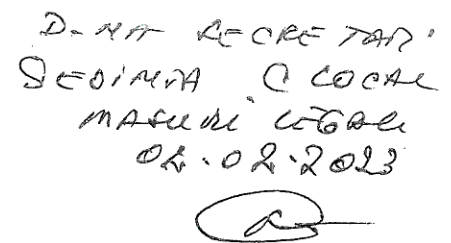 D-NA SECRETAR
SEDINTA C LOCAL
MASURI LEGALE
02.02.2023